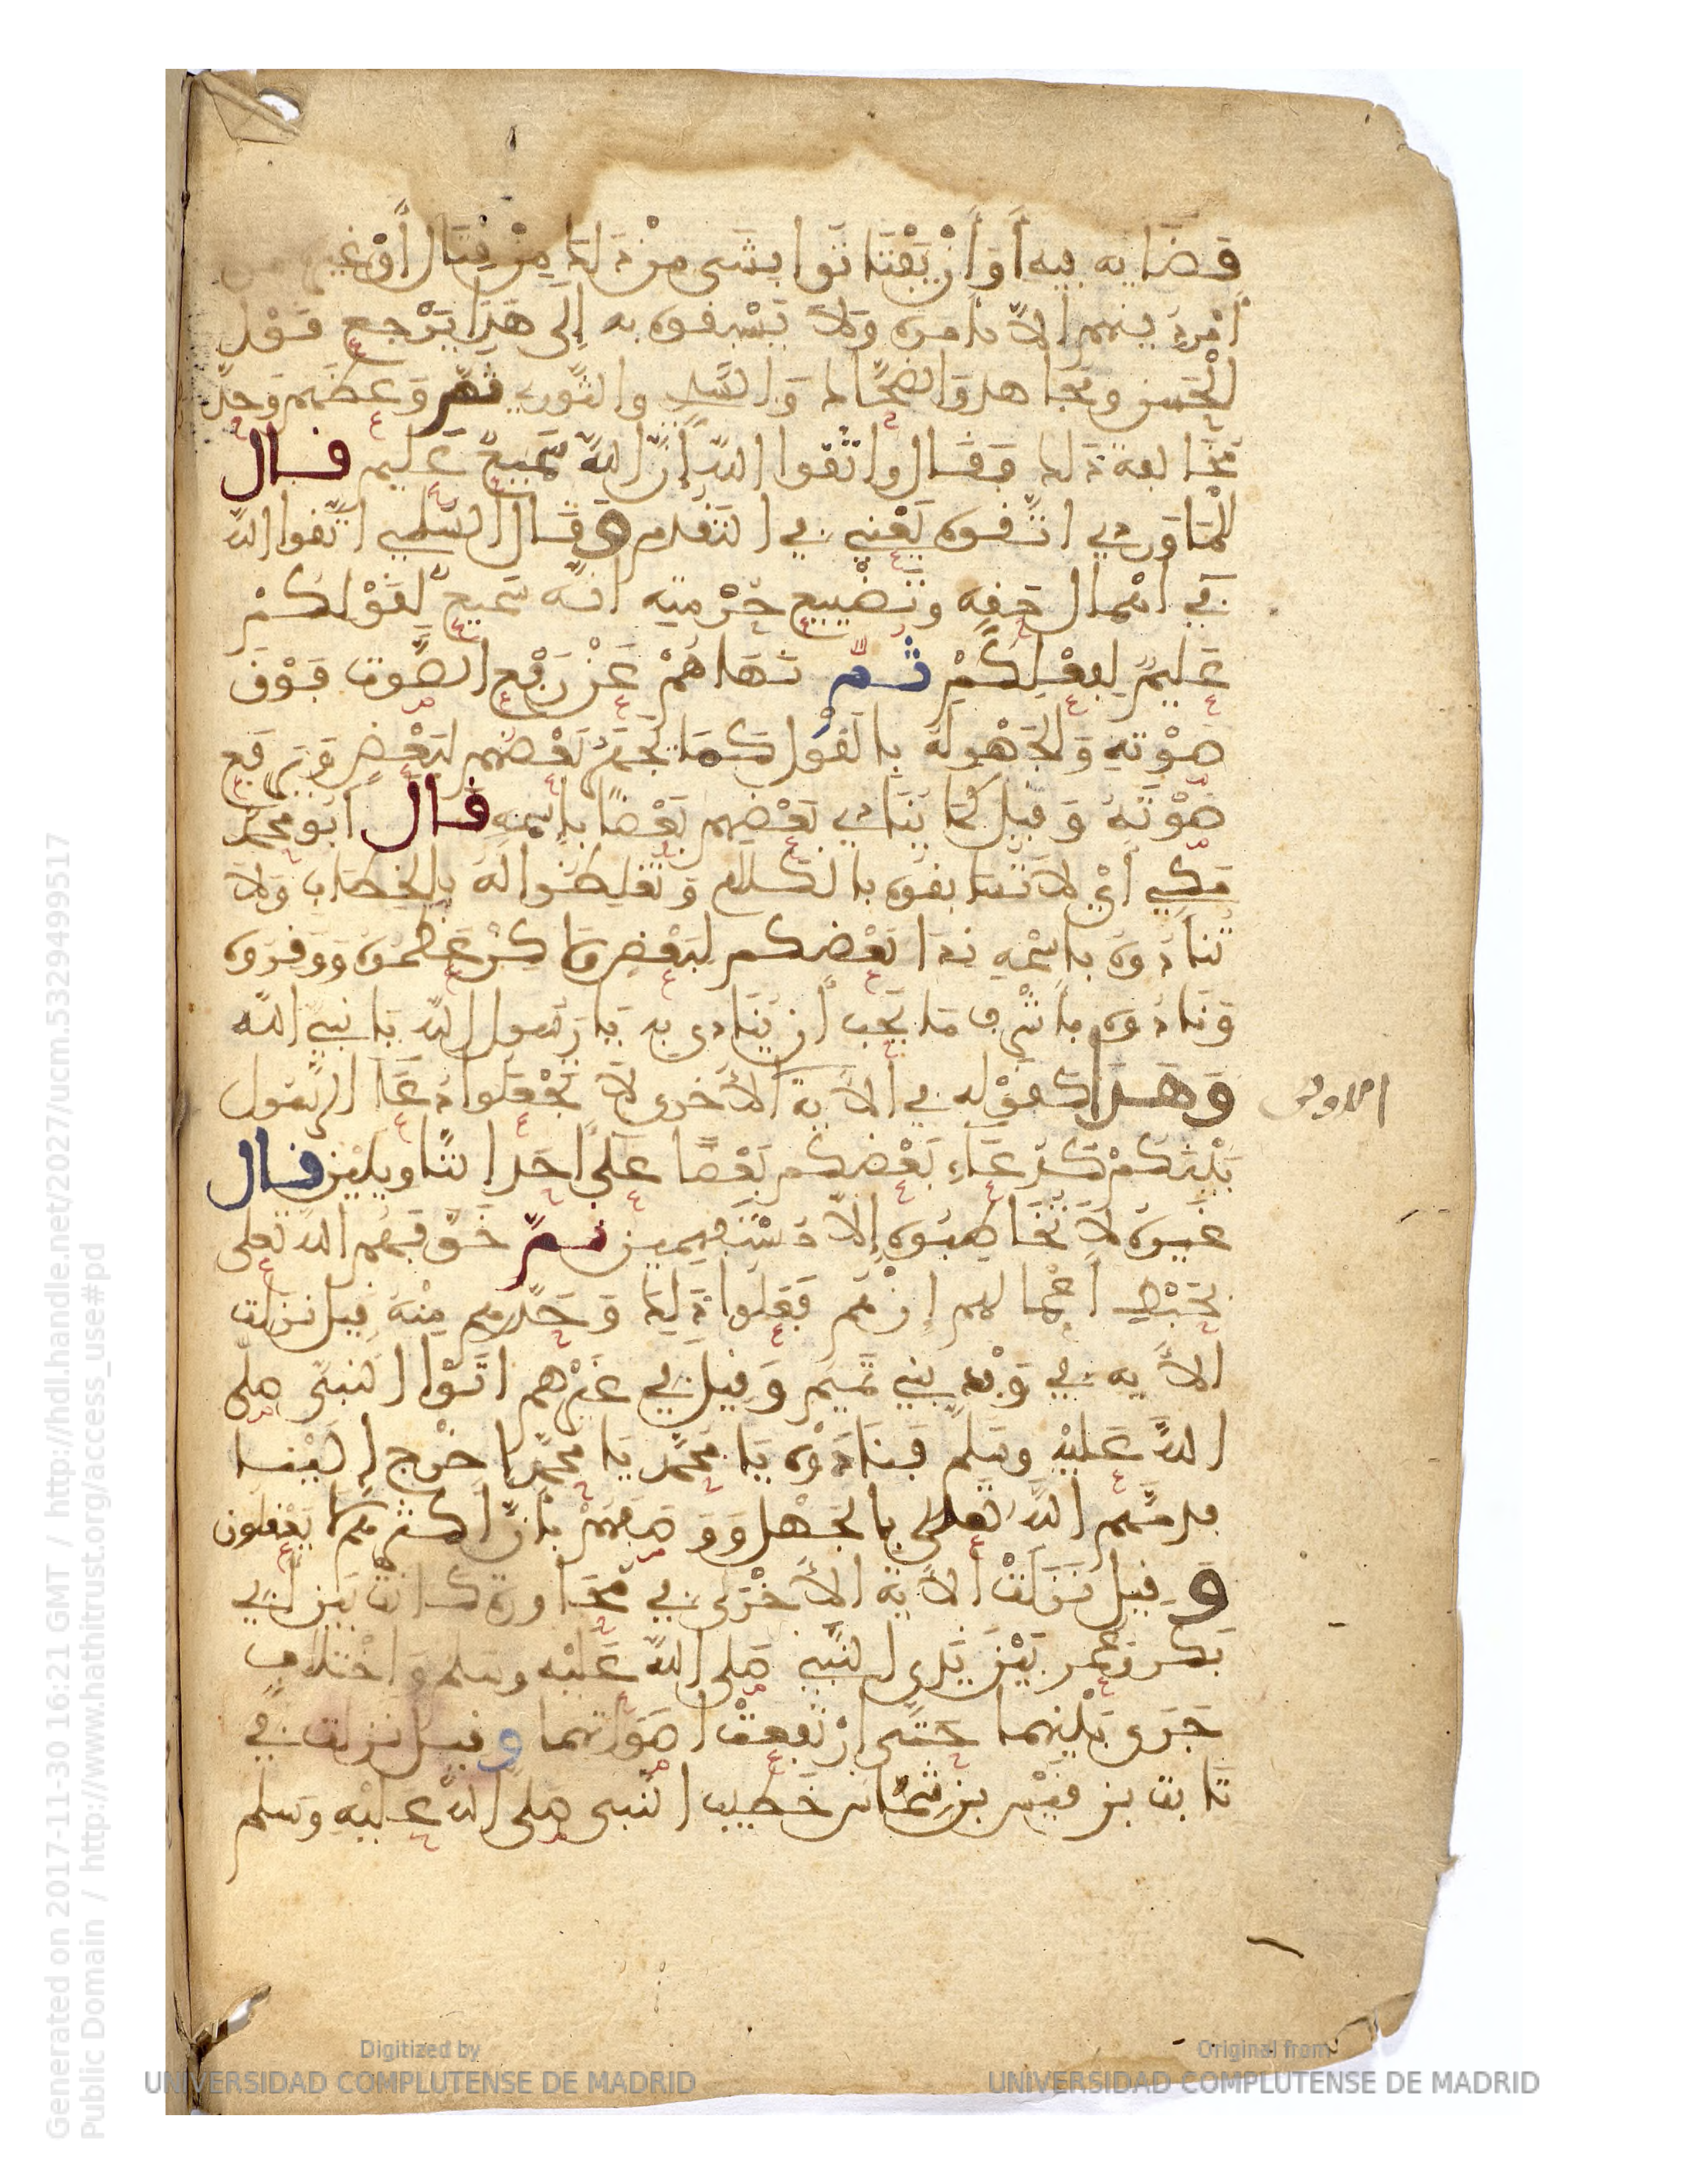 قَضَايه فِيه أَوَ أَنْ يَفْتَاتُوا بشَىءٍ مِنْ ذَلِكَ مِنْ قِتَالٍ أَوْ غَيره من
أَمْرِ دينهم الاَّ بأمره وَلاَ يَسْبِقوه به إِلى هَذَا يَرْجع قَوْل
الْحَسن ومجَاهد وَالضحَّاك وَالسُّدي والثَّوري ثم وَعَظَهم وحذّرهم
مُخَالفة ذَلك فقَال واتقوا اللَّه إِنَّ اللَّهَ سَميعٌ عَلِيم قال
الْمَاوَردي اتَّقوه يَعْني في التقدم وقَال السُّلمي اتَّقوا اللَّه
في اهْمال حَقِه وتَضْييع حُرْمتِه انَّه سَميعٌ لِقَوْلكمْ
عَلِيمٌ بِفِعْلِكُمْ ثم نَهَاهُمْ عَنْ رَفْع الصَّوت فَوْقَ
صَوْتِه وَالجَهْر لَهُ بالقَوْل كَمَا يَجْهَر بَعْضهم لبَعْضٍ وَيرفع
صَوْتَهُ وَقيل كَمَا يُنَادي بَعْضهم بَعْضًا باسْمِهِ قال أبو محمَّد
مَكي أَيْ لاَ تُسَابقوه بالكَلام وَتُغلِظوا لَهُ بِالخِطَاب وَلاَ
تُنَادُوه باسْمِهِ نِدَا بَعْضكم لبَعْض وَلَكِنْ عَظِّمُوه وَوَقروه
وَنَادُوه بأَشْرف مَا يُحب أَن يُنَادى به يَا رَسُول اللَّه يَا نبي اللَّه
وَهَذَا كقَوْله في الأَية الأُخرى لاَ تَجْعَلوا دُعَآ الرَّسُول
بَيْنَكُمْ كَدُعَآءِ بَعْضكم بَعْضًا عَلَى احَد التَّاويلَيْن قال
غَيره لاَ تُخَاطِبُوه إِلاَّ مُسْتَفهمين ثم خَوَّفَهم اللَّه تَعلى
بحَبْط أَعْمالهم إِنْ هُم فَعَلوا ذَلِكَ وَحَذَّرهم مِنْهُ قيل نزلت
الأَيه في وَفْد بني تَميم وَقيل في غَيْرهم اتَوُا النبىَّ صلى
اللَّه عَليْه وسَلم فَنَادَوْه يَا مُحَمَّد يَا محمَّد اخْرج إِلَيْنا
فذمَّهم اللَّه تعلى بالجَهْل وَوَصَفَهمْ بأنَّ اكثرهم لا يَعْقلون
وَقيل نَزَلَتْ الأَية الأُخْرَى في مُحَاورة كانت بَيْن أَبي
بَكر وعُمر بَيْنَ يَدي النَّبي صلى اللَّه عَلَيْه وسلم وَاخْتلاف
جَرَى بَيْنهما حَتَّى ارْتَفعَتْ اصْوَاتهما وقيل نزلت في
ثَابت بن قيْس بن شمَّاس خَطيب النبى صلى اللَّه عليْه وسَلم
Generated on 2017-11-30 16:21 GMT / http://hdl.handle.net/2027/ucm.5329499517
Public Domain / http://www.hathitrust.org/access_use#pd
Digitized by
UNIVERSIDAD COMPLUTENSE DE MADRID
Original from
UNIVERSIDAD COMPLUTENSE DE MADRID